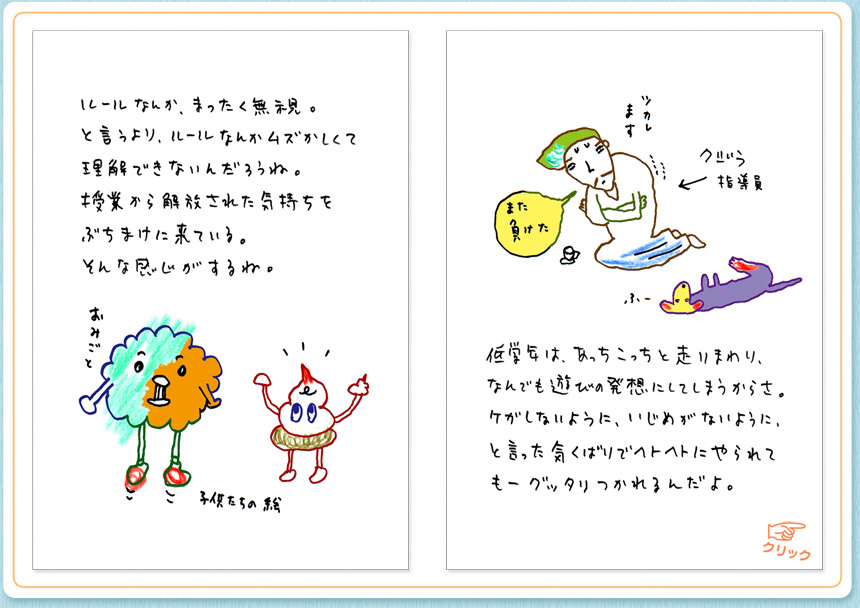 ルールなんか、まったく無視。
と言うより、ルールなんかムズかしくて
理解できないんだろうね。
授業から解放された気持ちを
ぶちまけに来ている。
そんな感じがするね。
おみごと
子供たちの絵
ツカレ
ます
指導員
また
負けた
ふー
低学年は、あっちこっちと走りまわり、
なんでも遊びの発想にしてしまうからさ。
ケガしないように、いじめがないように、
と言った気くばりでヘトヘトにやられて
もーグッタリつかれるんだよ。
クリック